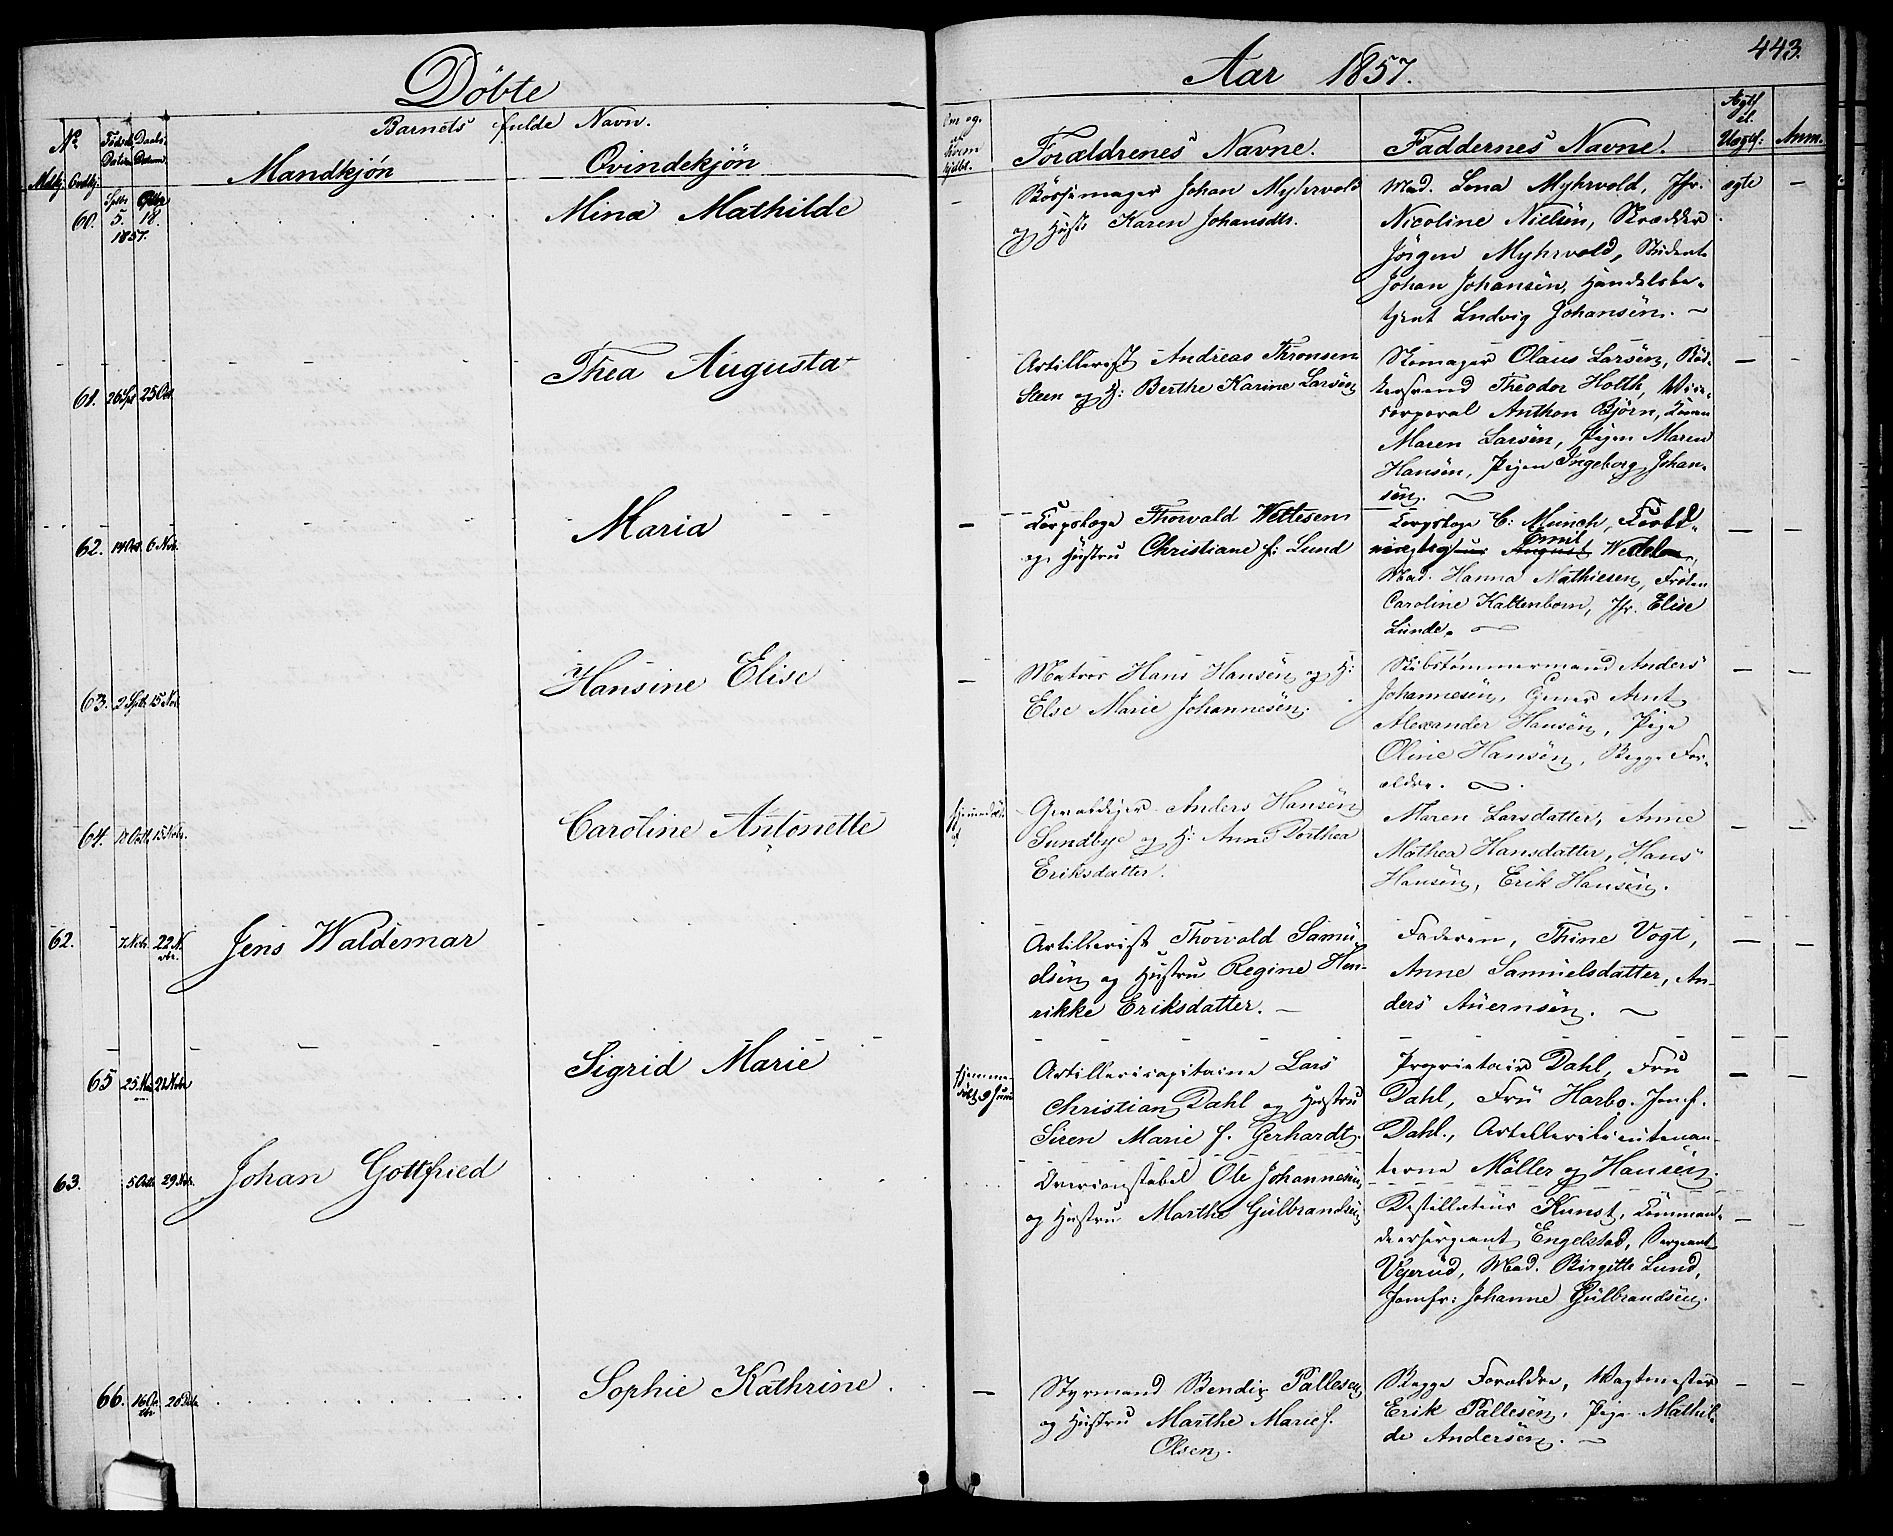 443.
Döbte
Aar 1857.
Barnets fulde Navn.
No Fødsels Datum Daabs Datum
Mandkjøn Qvindekjøn
Forældrenes Navne. Faddernes Navne. Anm.
60. 5. 18. 1857. Mina Mathilde
Bössemager Johan Myhrvold
og Hust. Karen Johansdtr.
Mad. Lena Myhrvold, Jfr.
Nicoline Nielsen, Skrædder
Jörgen Myhrvold, Student
Johan Johansen, Handelsbe-
tjent Ludvig Johansen. —
ægte —
61. 26 Spt 25 Oct. Thea Augusta
Artillerist Andreas Thronsen
Steen og H: Berthe Karine Larsen
Skomager Olaus Larsen, Bød-
kersvend Theodor Holth, Vice-
corporal Anthon Björn, Konen
Maren Larsen, Pigen Maren
Hansen, Pigen Ingeborg Johan-
sen. —
62. 14 Oct. 6 Nov. Maria
Korpslæge Thorvald Wettesen
og Hustru Christiane f: Lund
Korpslæge C: Munch, Fuld-
mægtig Emil August
Mad. Hanna Mathiesen, Frøken
Caroline Kaltenborn, Jfr. Elise
Lunde. —
63. 2 Spt. 15 Nov. Hansine Elise
Matros Hans Hansen og H:
Else Marie Johannesen.
Skibstømmermand Anders
Johannesen, Arnt
Alexander Hansen, Pige
Oline Hansen, Begge For-
ældre. —
64. 17 Octb. 15 Novbr. Caroline Antonette
Anders Hansen
Sundbye og H: Anne Dorthea
Eriksdatter.
Maren Larsdatter, Anne
Mathea Hansdatter, Hans
Hansen, Erik Hansen.
62. 7 Nov. 22 Nvbr. Jens Waldemar
Artillerist Thorvald Samu-
elsen og Hustru Regine Hen-
rikke Eriksdatter. —
Faderen, Thine Vogt,
Anne Samuelsdatter, An-
ders Auernsen. —
65 Sigrid Marie
Hjemme-
døbt 9 Juni
Artillericapitaine Lars
Christian Dahl og Hustru
Siren Marie f. Gerhardt.
Proprietair Dahl, Fru
Dahl, Fru Harbo, Jomf.
Dahl., Artillerilieutenan-
terne Möller og Hansen.
63. 5 Octb. 29 Nvbr. Johan Gottfried
Overconstabel Ole Johannesen
og Hustru Marthe Gulbrandsen
Destillateur Kunst, Komman-
deersergeant Engelstad, Sergeant
Vejerud, Mad. Birgitte Lund,
Jomfr: Johanne Gulbrandsen.
66. Sophie Kathrine.
Styrmand Bendix Pallesen
og Hustru Marthe Marie f.
Olsen.
Begge Forældre, Vagtmester
Erik Pallesen, Pige Mathil-
de Andersen. —